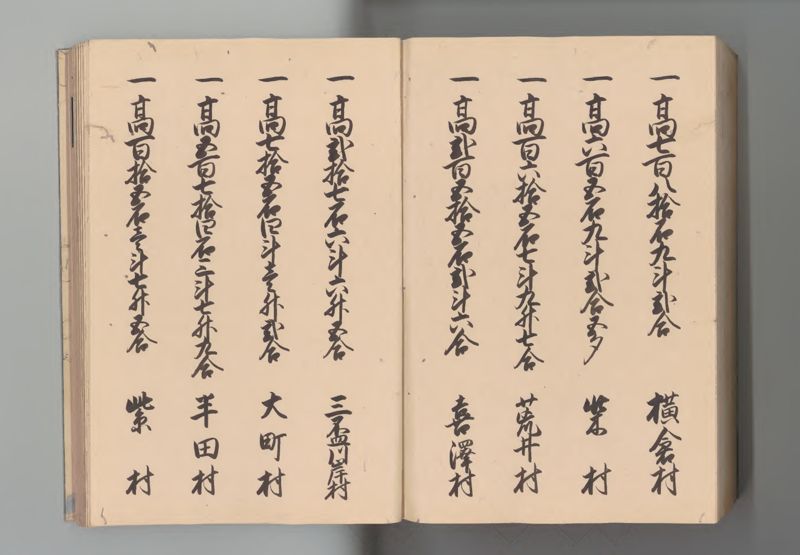 一 高七百八拾石九斗弐合 横倉村
一 高六百五石九斗弐合五夕 柴村
一 高百六拾五石七斗九升七合 荒井村
一 高弐百五拾五石弐斗六合 喜澤村
一 高弐拾七石六斗六升五合 三盃川岸村
一 高七拾五石四斗壱升弐合 大町村
一 高五百七拾四石三斗七升九合 半田村
一 高百拾五石壱斗七升五合 紫村